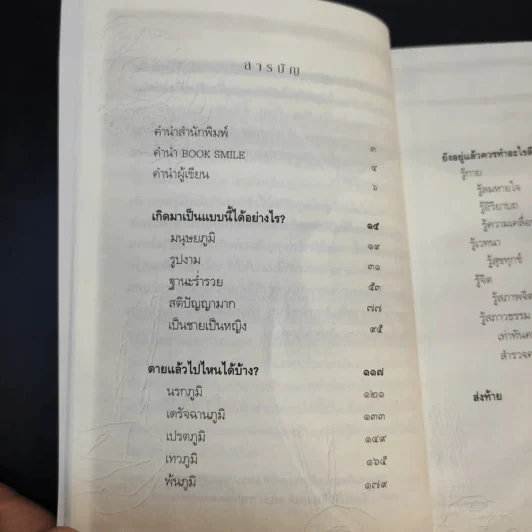 สารบัญ
คำนำสำนักพิมพ์ ๓
คำนำ BOOK SMILE ๔
คำนำผู้เขียน ๖
เกิดมาเป็นแบบนี้ได้อย่างไร? ๑๔
มนุษยภูมิ ๑๙
รูปงาม ๓๑
ฐานะร่ำรวย ๕๓
สติปัญญามาก ๗๗
เป็นชายเป็นหญิง ๙๕
ตายแล้วไปไหนได้บ้าง? ๑๑๗
นรกภูมิ ๑๒๑
เดรัจฉานภูมิ ๑๓๓
เปรตภูมิ ๑๔๙
เทวภูมิ ๑๖๕
พ้นภูมิ ๑๗๙
ยังอยู่แล้วควรทำอะไรดี
รู้กาย
รู้ลมหายใจ
รู้อิริยาบถ
รู้ความเคลื่อ
รู้เวทนา
รู้สุขทุกข์
รู้จิต
รู้สภาพจิต
รู้สภาวธรรม
เท่าทันค
สำรวจค
ส่งท้าย